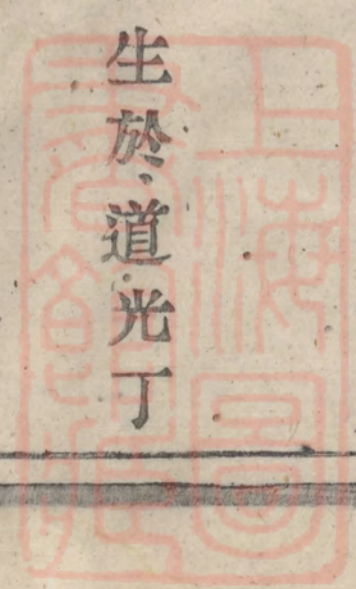 生於道光丁
上海圖書館藏